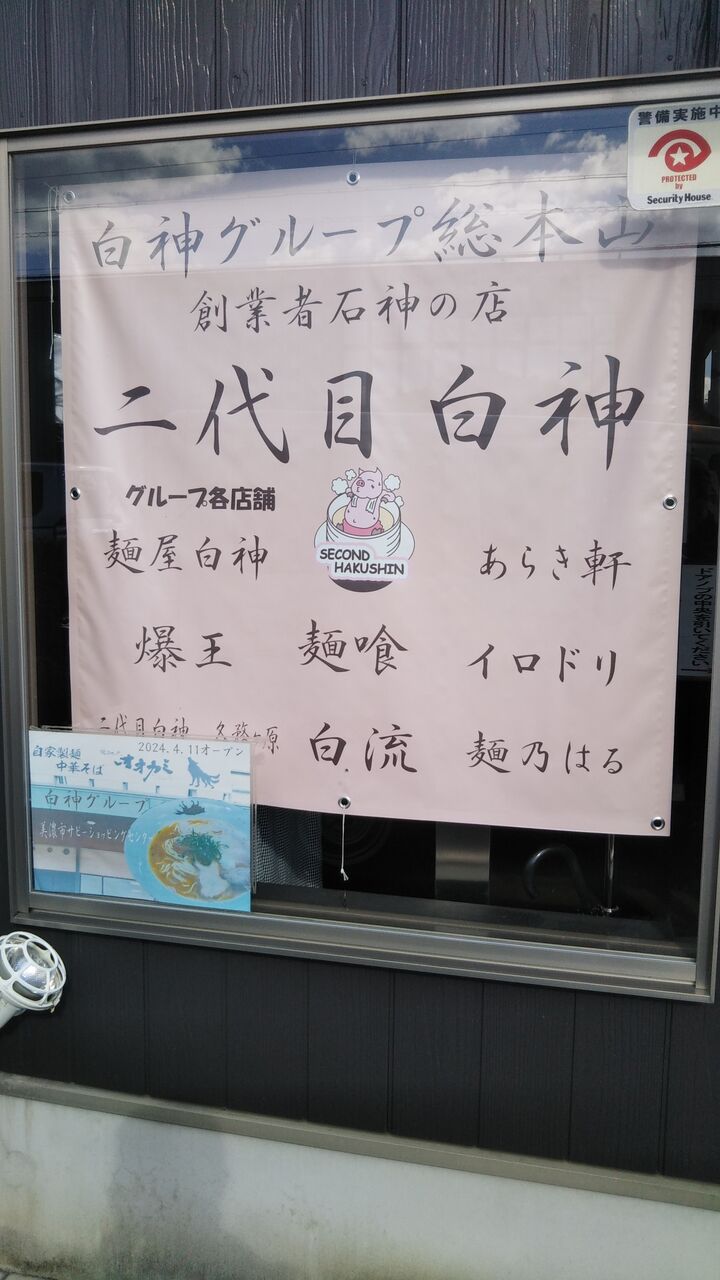 警備実施中
PROTECTED
by
Security House
白神グループ総本山
創業者石神の店
二代目白神
グループ各店舗
SECOND
HAKUSHIN
麺屋白神
あらき軒
爆王
麺喰
イロドリ
二代目白神 各務ヶ原
白流
麺乃はる
2024.4.11オープン
自家製麺
中華そば
オオカミ
白神グループ
美濃市サピーショッピングセンター
ドアノブの中央を引いてください